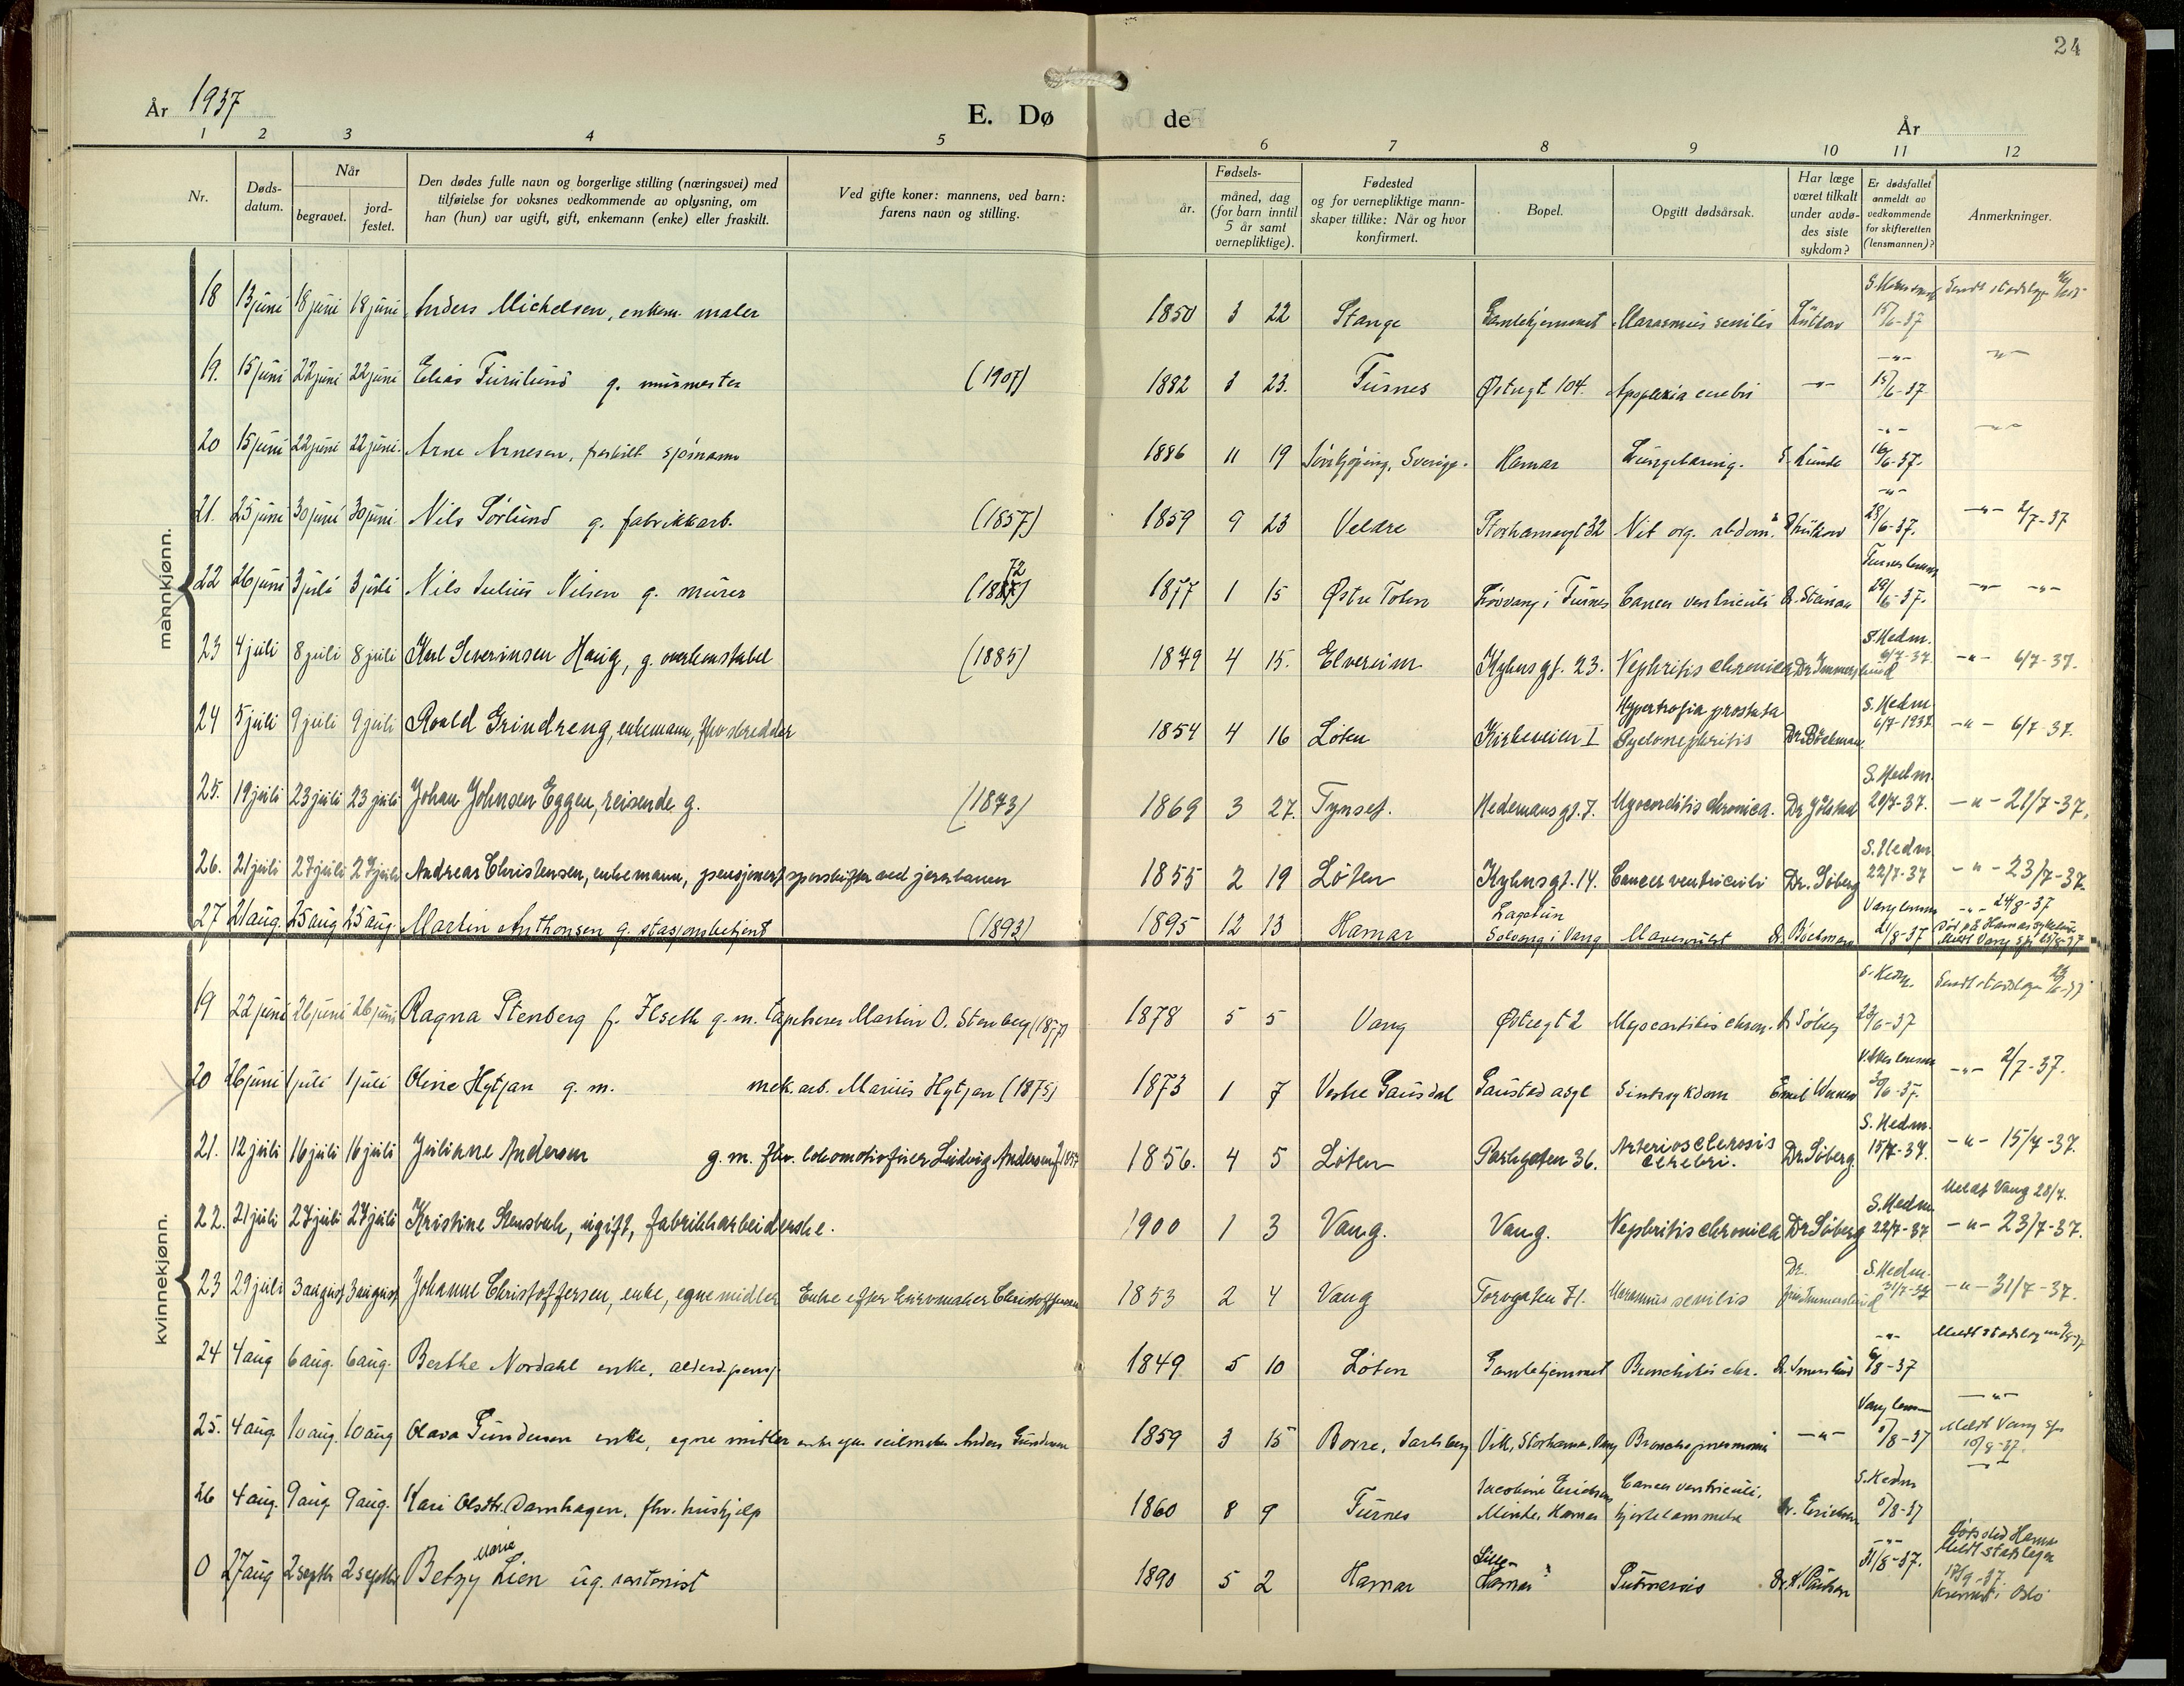 24
År 1937
E. Dø de
År
1 2 3 4 5 6 7 8 9 10 11 12
Nr.
Døds-
datum.
Når
begravet.
jord-
festet.
Den dødes fulle navn og borgerlige stilling (næringsvei) med
tilføielse for voksnes vedkommende av oplysning, om
han (hun) var ugift, gift, enkemann (enke) eller fraskilt.
Ved gifte koner: mannens, ved barn:
farens navn og stilling.
Fødsels-
år.
måned, dag
(for barn inntil
5 år samt
vernepliktige).
Fødested
og for vernepliktige mann-
skaper tillike: Når og hvor
konfirmert.
Bopel.
Opgitt dødsårsak.
Har læge
været tilkalt
under avdø-
des siste
sykdom?
Er dødsfallet
anmeldt av
vedkommende
for skifteretten
(lensmannen)?
Anmerkninger.
mannkjønn.
18 13 juni 18 juni 18 juni Anders Michelsen, enkem. maler 1850 3 22 Stange Gamlehjemmet Marasmus senilis 15/6-37
19. 15 juni 22 juni 22 juni Elias Furulund g. murmester (1907) 1882 3 23. Furnes Østregt. 104. Apoplexia cerebri -"- -"- 15/6-37 -"-
20 15 juni 22 juni 22 juni. Arne Arnesen, fraskilt sjømann 1886 11 19 Sverige. Hamar Lungebetring. S. Lunde -"- 16/6-37. -"-
21. 25 juni 30 juni 30 juni. Nils Sørlund g. fabrikkarb. (1857) 1859 9 23 Veldre Storhamargt 32 -"- 28/6-37. -"- 2/7-37
22 26 juni 3 juli 3 juli Nils Julius Nilsen g. murer (1872) 1877 1 15 Østre Toten i Furnes Cancer ventriculi Furnes lensm 29/6-37. -"- -"-
23 4 juli 8 juli 8 juli Karl Severinsen Haug, g. overkonstabel (1885) 1879 4 15. Elverum Kyhnsgt. 23. Nephritis chronica Dr Immerslund S. Hedm. 6/7-37. -"- 6/7-37.
24 5 juli 9 juli 9 juli Roald Grindreng, enkemann, fhv skredder 1854 4 16 Løten Kirkeveien I Hypertrofia prostata Pyelonephritis Dr. Bøckman. S. Hedm 6/7-1937 -"- 6/7-37.
25. 19 juli 23 juli 23 juli Johan Johnsen Eggen, reisende g. (1873) 1869 3 27. Tynset. Hedemarsgt. 7. Myocarditis chronica. Dr Jølstad S. Hedm. 20/7-37. -"- 21/7-37.
26. 21 juli 27 juli 27 juli Andreas Christensen, enkemann, pensjonert sporskifter ved jernbanen 1855 2 19 Løten Kyhnsgt. 14. Cancer ventriculi Dr. Søberg S. Hedm 22/7-37 -"- 23/7-37.
27 21 aug. 25 aug 25 aug. Martin Anthonsen g. stasjonsbetjent (1893) 1895 12 13 Hamar Lagetun Solvang i Vang Mavesykd Dr. Bøckman Vang lensm 21/8-37 -"- 24/8-37 Død på Hamar sykehus Meldt Vang
kvinnekjønn.
19 22 juni 26 juni 26 juni Ragna Stenberg f. Ilseth g.m. tapetserer Martin O. Stenberg (1877) 1878 5 5 Vang Østregt 2 Myocarditis chron. Dr Søberg S. Hedm. 23/6-37
20 26 juni 1 juli 1 juli Oline Hytjan g. m. mek. arb. Marius Hytjan (1875) 1873 1 7 Vestre Gausdal Gaustad asyl Sindssykdom V. Aker lensm -"- 2/7-37.
21. 12 juli 16 juli 16 juli Juliane Andersen g.m. fhv. lokomotivfører Ludvig Andersen f. 1855 1856. 4 5 Løten Parkgaten 36. Arteriosclerosis cerebri. Dr. Søberg. S. Hedm. 15/7-37. -"- 15/7-37.
22. 21 juli 27 juli 27 juli Kristine Stensbak, ugift, fabrikkarbeiderske. 1900 1 3 Vang. Vang. Nephritis chronica Dr Søberg S. Hedm. 22/7-37 Meldt Vang 28/7. -"- 23/7-37.
23 29 juli 3 august 3 august Johanne Christoffersen, enke, egne midler Enke efter kurvmaker Christoffersen 1853 2 4 Vang Torvgaten 71. Marasmus senilis Dr. Immerslund S. Hedm. 31/7-37 -"- 31/7-37.
24 4 aug 6 aug. 6 aug. Berthe Nordahl enke, alderd.pensj 1849 5 10 Løten Gamlehjemmet Bronchitis chr. -"- 6/8-37
25. 4 aug. 10 aug. 10 aug Olava Gundersen enke, egne midler enke efter seilmaker Anders Gundersen 1859 3 15 Borre, Jarlsberg Storhamar, Vang Bronchopneumoni -"- Vang lensm 5/8-37 -"- Meldt Vang 10/8-37.
26 4 aug. 9 aug. 9 aug. Kari Olsdtr. Damhagen. fhv. hushjelp 1860 8 9 Furnes Jacobine Erichsens Minde, Hamar Cancer ventriculi, hjertelammelse Dr. Erichsen S. Hedm 5/8-37 -"-
0 27 aug 2 septbr 2 septbr Betzy Marie Lien ug. kontorist 1890 5 2 Hamar Lille- Hamar -"- 31/8-37. Dødssted Hamar Meldt stadslegen 17/9-37 Kremert i Oslo